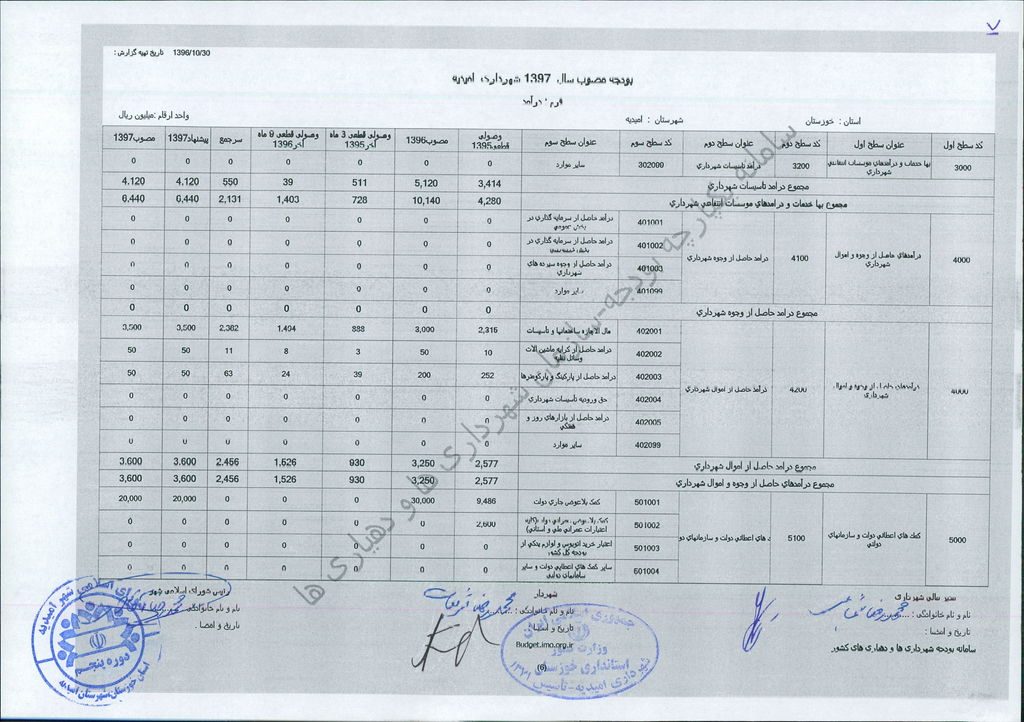 ۷
تاریخ تهیه گزارش : 1396/10/30
بودجه مصوب سال 1397 شهرداری امیدیه
فرم : درآمد
استان : خوزستان شهرستان : امیدیه واحد ارقام :میلیون ریال
کد سطح اول عنوان سطح اول کد سطح دوم عنوان سطح دوم کد سطح سوم عنوان سطح سوم وصولی قطعی1395 مصوب1396 وصولی قطعی 3 ماه آخر1395 وصولی قطعی 9 ماه آخر1396 سرجمع پیشنهاد1397 مصوب1397
3000 بها خدمات و درآمدهای موسسات انتفاعی شهرداری 3200 درآمد تاسیسات شهرداری 302099 سایر موارد 0 0 0 0 0 0 0
مجموع درآمد تاسیسات شهرداری 3,414 5,120 511 39 550 4,120 4,120
مجموع بها خدمات و درامدهای موسسات انتفاعی شهرداری 4,280 10,140 728 1,403 2,131 6,440 6,440
4000 درآمدهای حاصل از وجوه و اموال شهرداری 4100 درآمد حاصل از وجوه شهرداری 401001 درآمد حاصل از سرمایه گذاری در بخش عمومی 0 0 0 0 0 0 0
401002 درامد حاصل از سرمایه گذاری در بخش خصوصی 0 0 0 0 0 0 0
401003 درآمد حاصل از وجوه سپرده های شهرداری 0 0 0 0 0 0 0
401099 سایر موارد 0 0 0 0 0 0 0
مجموع درآمد حاصل از وجوه شهرداری 0 0 0 0 0 0 0
4000 درآمدهای حاصل از وجوه و اموال شهرداری 4200 درآمد حاصل از اموال شهرداری 402001 مال الاجاره ساختمانها و تاسیسات 2,315 3,000 888 1,494 2,382 3,500 3,500
402002 درامد حاصل از کرایه ماشین آلات وسائل نقلیه 10 50 3 8 11 50 50
402003 درآمد حاصل از پارکینگ و پارکومترها 252 200 39 24 63 50 50
402004 حق ورودیه تاسیسات شهرداری 0 0 0 0 0 0 0
402005 درامد حاصل از بازارهای روز و هفتگی 0 0 0 0 0 0 0
402099 سایر موارد 0 0 0 0 0 0 0
مجموع درامد حاصل از اموال شهرداری 2,577 3,250 930 1,526 2,456 3,600 3,600
مجموع درآمدهای حاصل از وجوه و اموال شهرداری 2,577 3,250 930 1,526 2,456 3,600 3,600
5000 کمک های اعطائی دولت و سازمانهای دولتی 5100 ک های اعطائی دولت و سازمانهای دو 501001 کمک بلاعوض جاری دولت 9,486 30,000 0 0 0 20,000 20,000
501002 کمک بلاعوض عمرانی دولت (کلیه اعتبارات عمرانی ملی و استانی) 2,600 0 0 0 0 0 0
501003 اعتبار خرید اتوبوس و لوازم یدکی از بودجه کل کشور 0 0 0 0 0 0 0
501004 سایر کمک های اعطایی دولت و سایر سازمانهای دولتی 0 0 0 0 0 0 0
سامانه یکپارچه بودجه-سازمان شهرداری ها و دهیاری ها
مدیر مالی شهرداری شهردار رئیس شورای اسلامی شهر
نام و نام خانوادگی : نام و نام خانوادگی : نام و نام خانوادگی :
تاریخ و امضا : تاریخ و امضا : تاریخ و امضا :
سامانه بودجه شهرداری ها و دهیاری های کشور Budget.imo.org.ir
(6)
وزارت کشور
استانداری خوزستان
شهرداری امیدیه-تأسیس
شورای اسلامی شهر امیدیه
دوره پنجم
استان خوزستان،شهرستان امیدیه